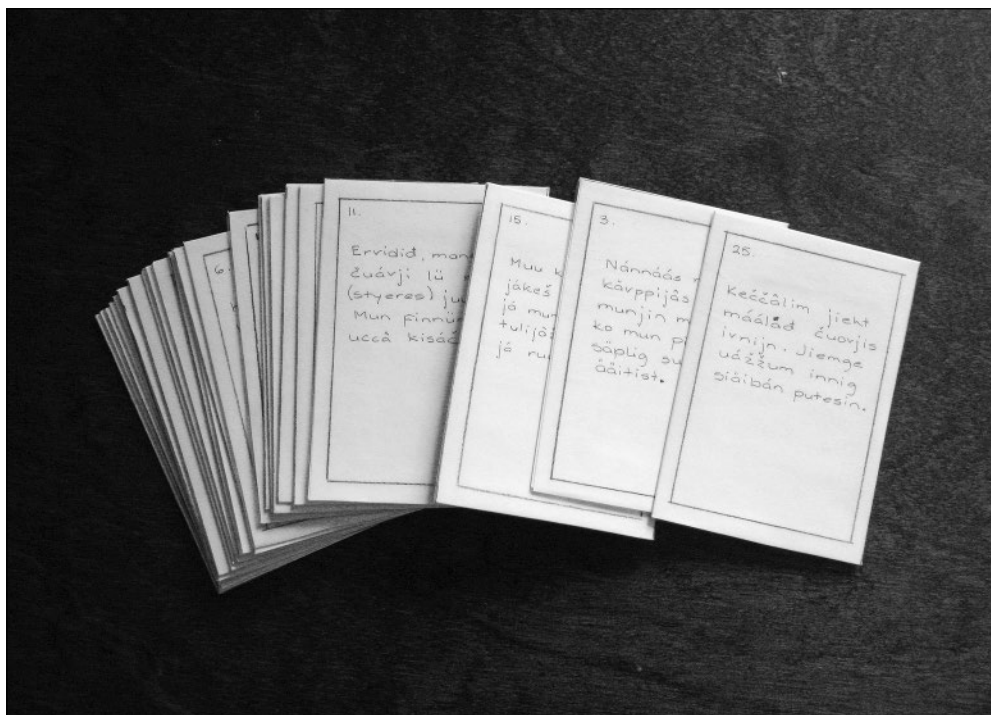 6.
11.
Ervidiđ, man
čuávji lii
(styeres) juu
Mun finnii
uccâ kisáč
15.
Muu k
jákeš
já mun
tulijáž
já ruu
3.
Nánnáás
kávppijâs
munjin m
ko mun pi
säplig su
ááitist.
25.
Keččâlim jieht
máálâđ čuovjis
ivnijn. Jiemge
uážžum innig
siäibán putesin.